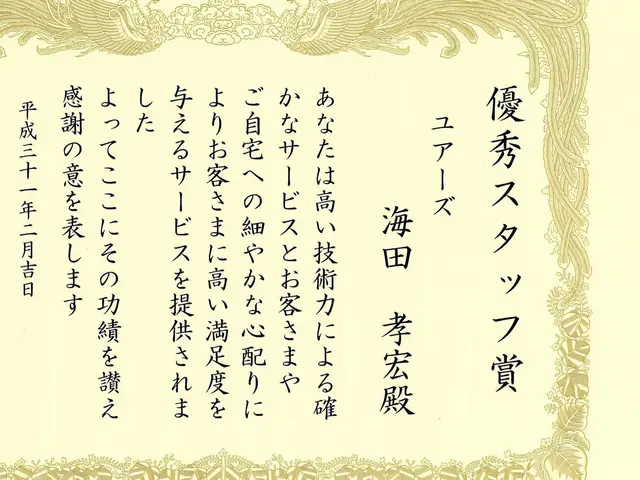 優秀スタッフ賞
ユアーズ
海田 孝宏殿
あなたは高い技術力による確
かなサービスとお客さまや
ご自宅への細やかな心配りに
よりお客さまに高い満足度を
与えるサービスを提供されま
した
よってここにその功績を讃え
感謝の意を表します
平成三十一年二月吉日